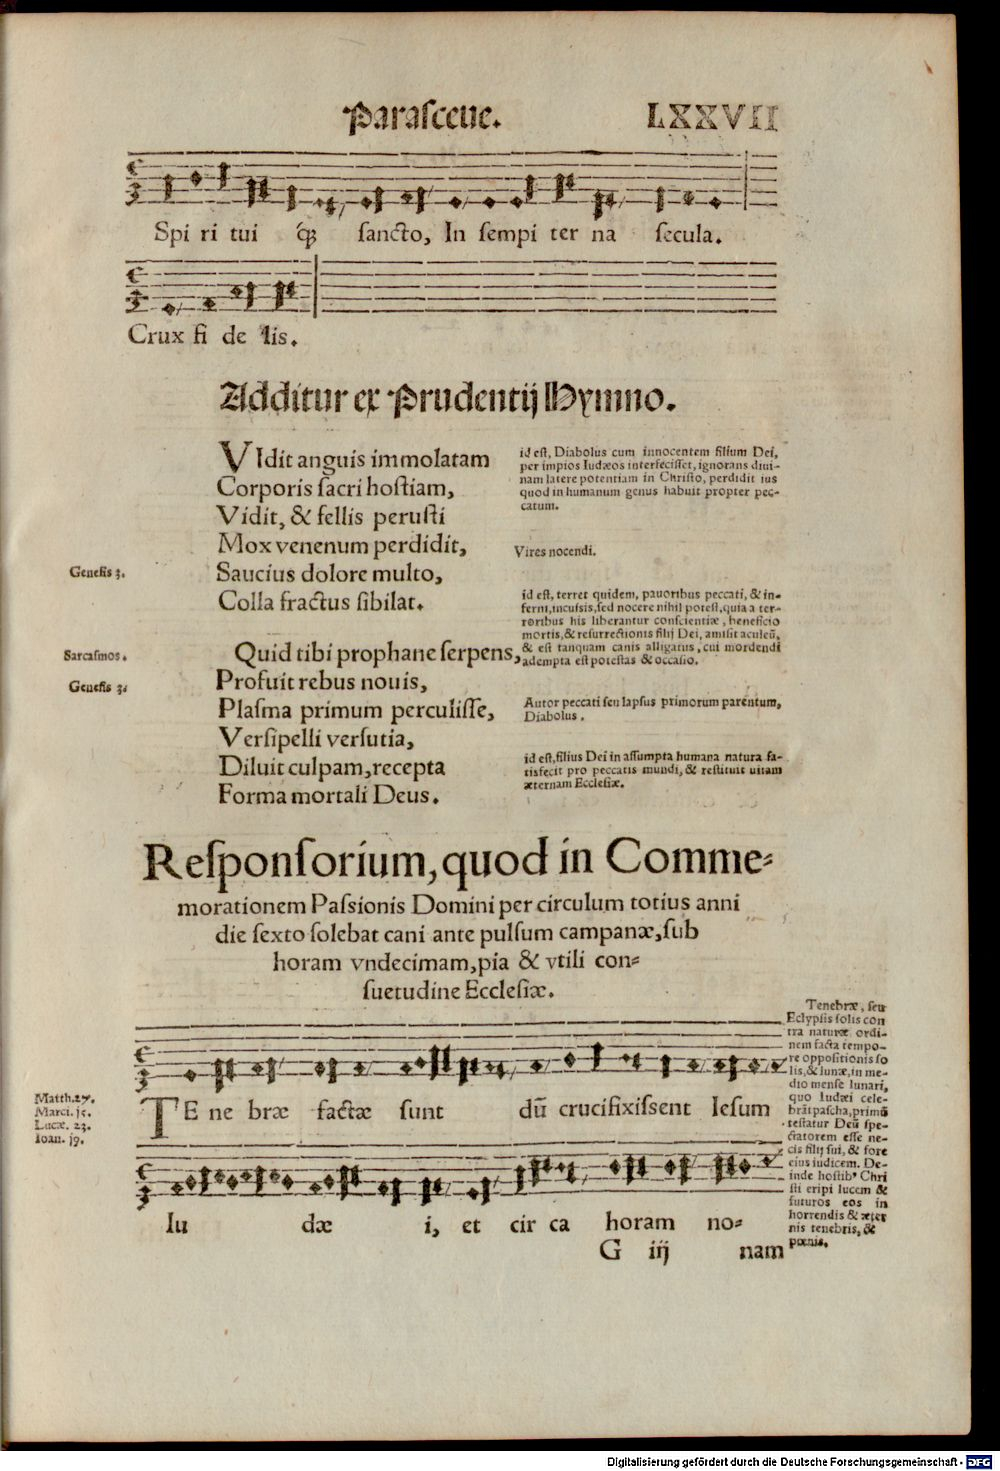 Parasceue. LXXVII
Spi ri tui q́ꝫ sancto, In sempi ter na secula.
Crux fi de lis.
Additur ex Prudentij Hymno.
VIdit anguis immolatam
Corporis sacri hostiam,
Vidit, & fellis perusti
Mox venenum perdidit,
Saucius dolore multo,
Colla fractus sibilat.
id est, Diabolus cum innocentem filium Dei,
per impios Iudæos interfecisset, ignorans diui-
nam latere potentiam in Christo, perdidit ius
quod in humanum genus habuit propter pec-
catum.
Vires nocendi.
Genesis 3.
id est, terret quidem, pauoribus peccati, & in-
ferni, incussis, sed nocere nihil potest, quia a ter-
roribus his liberantur conscientiæ, beneficio
mortis, & resurrectionis filij Dei, amisit aculeū,
& est tanquam canis alligatus, cui mordendi
adempta est potestas & occasio.
Sarcasmos.
Genesis 3.
Quid tibi prophane serpens,
Profuit rebus nouis,
Plasma primum perculisse,
Versipelli versutia,
Diluit culpam, recepta
Forma mortali Deus.
Autor peccati seu lapsus primorum parentum,
Diabolus.
id est, filius Dei in assumpta humana natura sa-
tisfecit pro peccatis mundi, & restituit uitam
æternam Ecclesiæ.
Responsorium, quod in Comme-
morationem Passionis Domini per circulum totius anni
die sexto solebat cani ante pulsum campanæ, sub
horam vndecimam, pia & vtili con-
suetudine Ecclesiæ.
Matth. 27.
Marci. 15.
Lucæ. 23.
Ioan. 19.
TE ne bræ factæ sunt dū crucifixissent Iesum
Iu dæ i, et cir ca horam no-
G iij nam
Tenebræ, seu
Eclypsis solis con
tra naturæ ordi-
nem facta tempo-
re oppositionis so
lis, & lunæ, in me-
dio mense lunari,
quo Iudæi cele-
brāt pascha, primū
testatur Deū spe-
ctatorem esse ne-
cis filij sui, & fore
eius iudicem. De-
inde hostibꝰ Chri
sti eripi lucem &
futuros eos in
horrendis & æter
nis tenebris, &
pœnis.
Digitalisierung gefördert durch die Deutsche Forschungsgemeinschaft - DFG